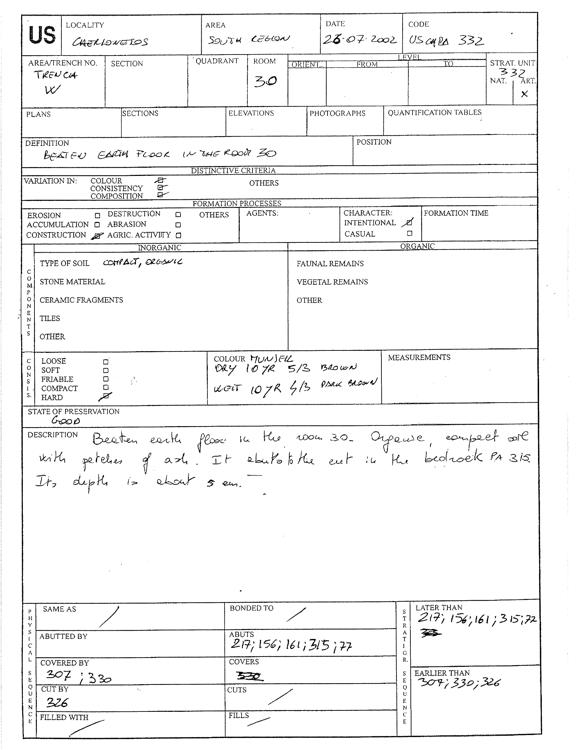 US
LOCALITY
CHERSONESOS
AREA
SOUTH REGION
DATE
26-07-2002
CODE
US CHBA 332
AREA/TRENCH NO.
TRENCH
W
SECTION
QUADRANT
ROOM
30
LEVEL
ORIENT.
FROM
TO
STRAT. UNIT
332
NAT. ART.
x
PLANS
SECTIONS
ELEVATIONS
PHOTOGRAPHS
QUANTIFICATION TABLES
DEFINITION
BEATEN EARTH FLOOR IN THE ROOM 30
POSITION
DISTINCTIVE CRITERIA
VARIATION IN: COLOUR
CONSISTENCY
COMPOSITION
OTHERS
FORMATION PROCESSES
EROSION
ACCUMULATION
CONSTRUCTION
DESTRUCTION
ABRASION
AGRIC. ACTIVITY
OTHERS
AGENTS:
CHARACTER:
INTENTIONAL
CASUAL
FORMATION TIME
INORGANIC
ORGANIC
COMPONENTS
TYPE OF SOIL COMPACT, ORGANIC
STONE MATERIAL
CERAMIC FRAGMENTS
TILES
OTHER
FAUNAL REMAINS
VEGETAL REMAINS
OTHER
CONSIS.
LOOSE
SOFT
FRIABLE
COMPACT
HARD
COLOUR MUNSELL
DRY 10 YR 5/3 BROWN
WET 10 YR 4/3 DARK BROWN
MEASUREMENTS
STATE OF PRESERVATION
GOOD
DESCRIPTION Beaten earth floor in the room 30. Organic, compact soil
with patches of ash. It abuts to the cut in the bedrock PA 315
Its depth is about 5 cm.
PHYSICAL SEQUENCE
SAME AS /
BONDED TO /
ABUTTED BY
ABUTS
217; 156; 161; 315; 77
COVERED BY
307; 330
COVERS
330
CUT BY
326
CUTS /
FILLED WITH /
FILLS /
STRATIGR. SEQUENCE
LATER THAN
217; 156; 161; 315; 77
EARLIER THAN
307; 330; 326